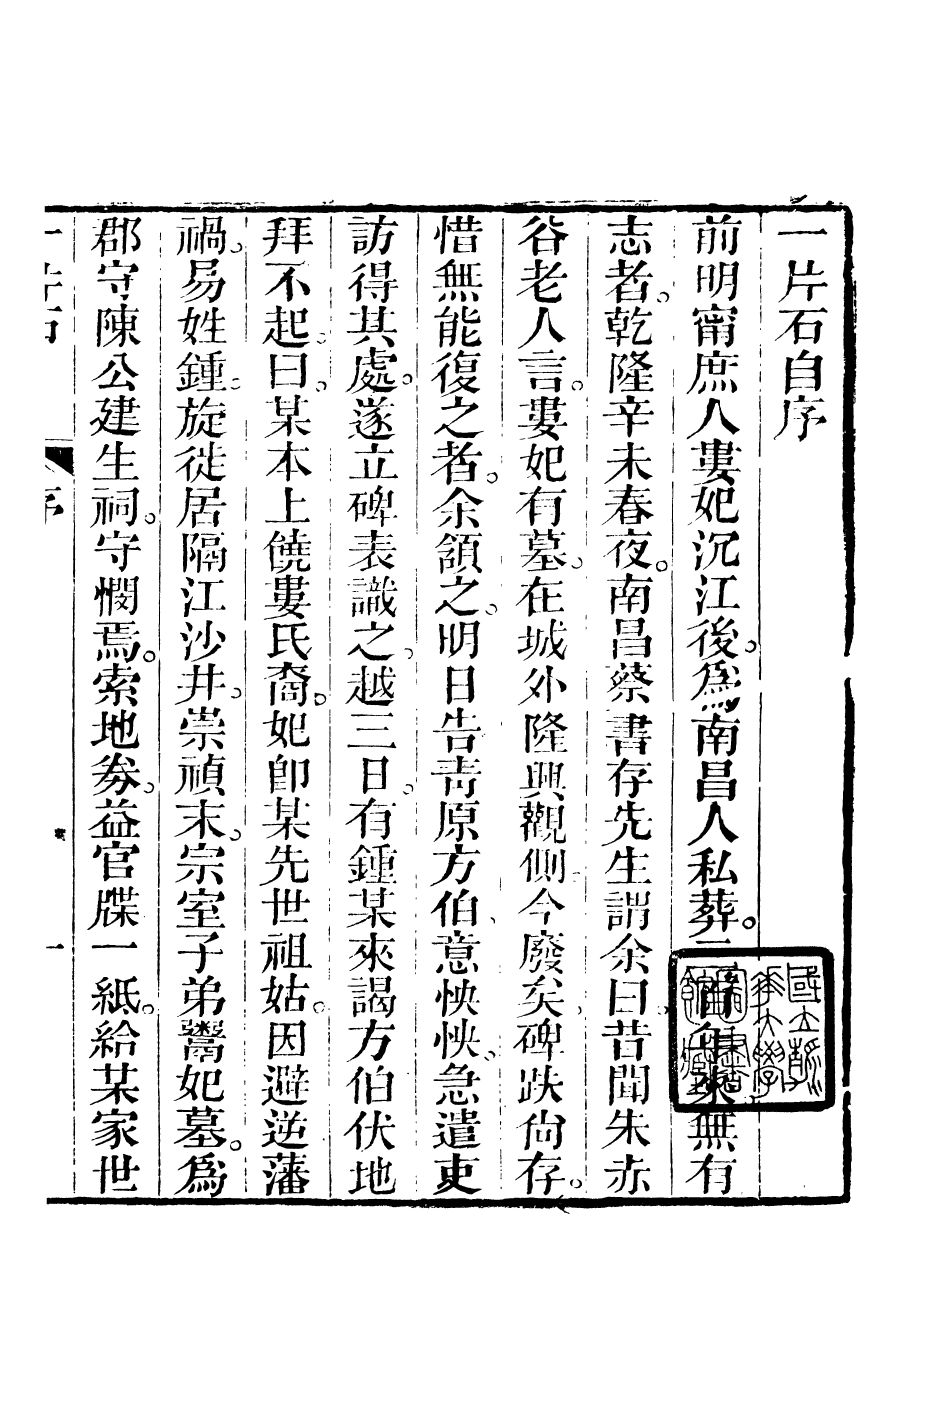 一片石自序
前明甯庶人婁妃沉江後。爲南昌人私葬。二百年來無有
志者。乾隆辛未春夜。南昌蔡書存先生謂余曰。昔聞朱赤
谷老人言。婁妃有墓。在城外隆興觀側今廢矣。碑趺尙存。
惜無能復之者。余頷之。明日告靑原方伯、意怏怏。急遣吏
訪得其處。遂立碑表識之。越三日。有鍾某來謁方伯伏地
拜不起。曰。某本上饒婁氏裔。妃卽某先世祖姑。因避逆藩
禍。易姓鍾。旋徙居隔江沙井。崇禎末。宗室子弟鬻妃墓。爲
郡守陳公建生祠。守憫焉。索地劵。益官牒一紙。給某家世
一片石 序 一
國立清華大學圖書館藏